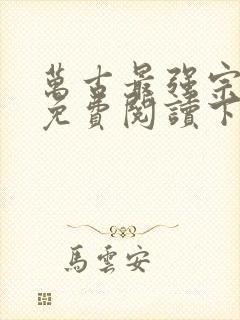 萬古最強宗
免費閱讀下
馬雲安